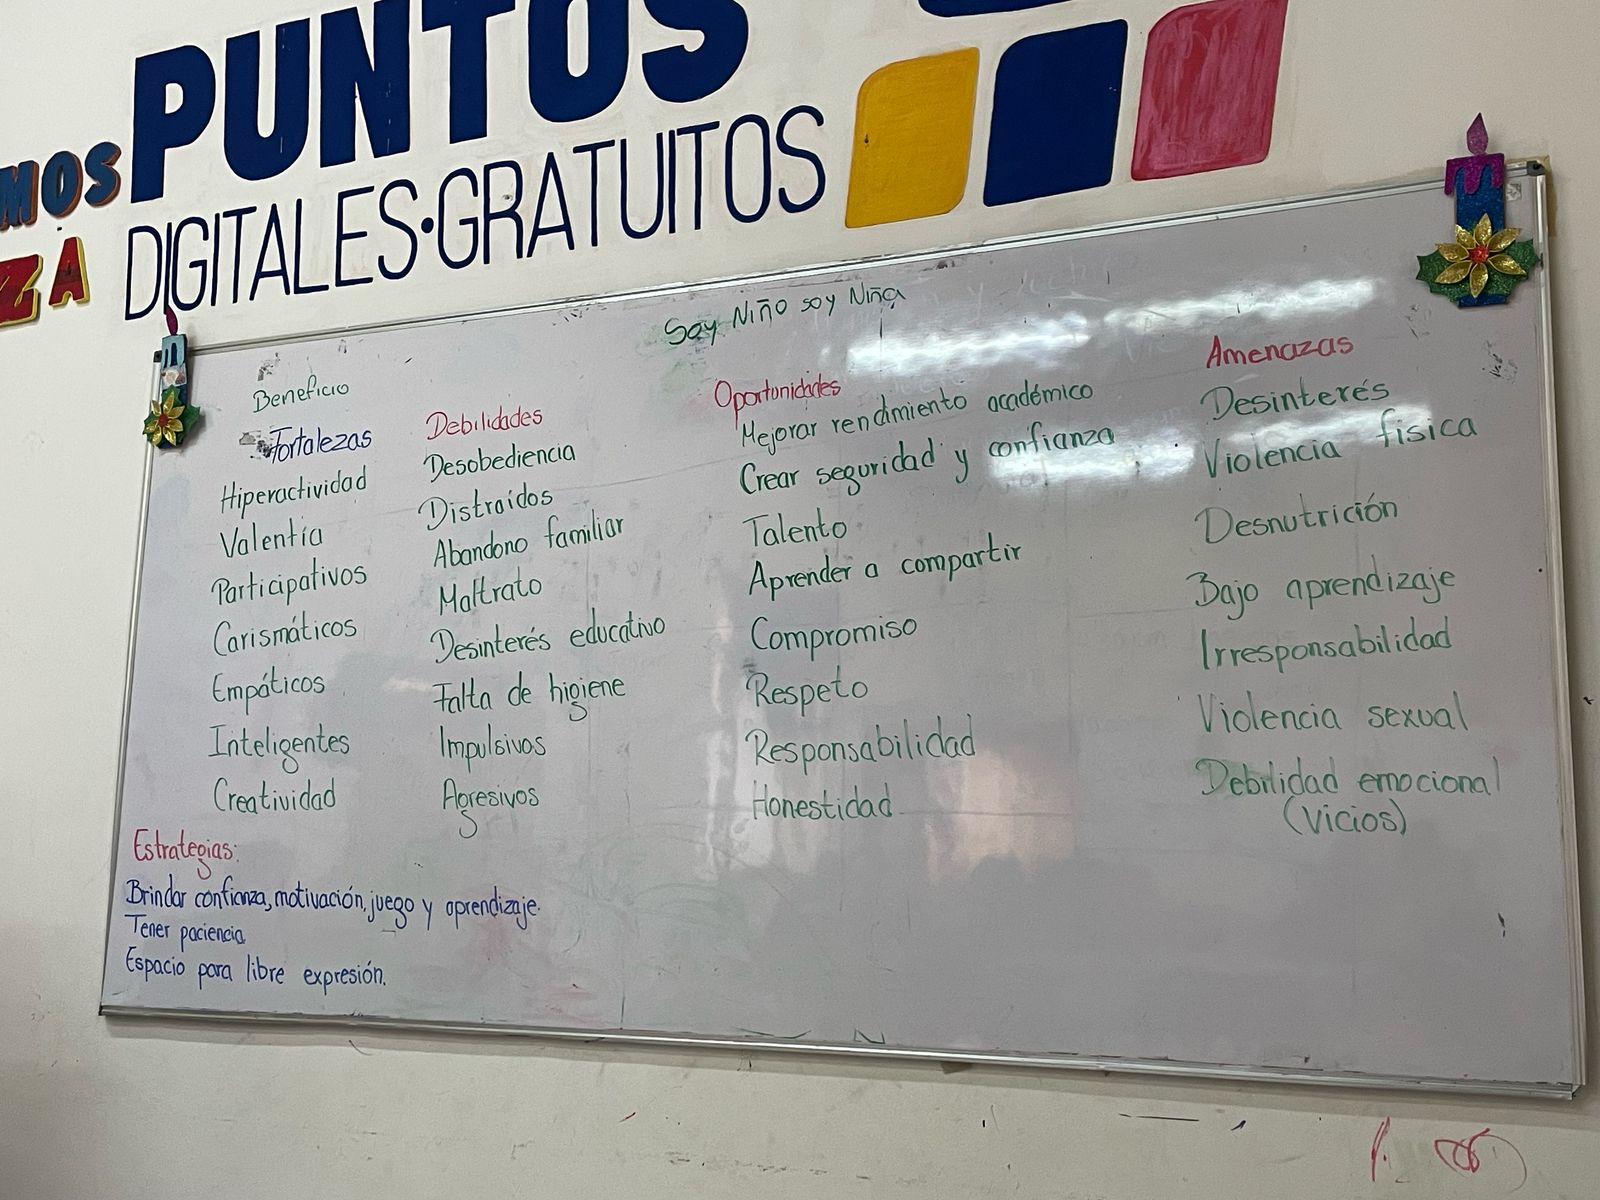 PUNTOS
MOS
DIGITALES·GRATUITOS
ZA
Soy Niño soy Niña
Beneficio
Fortalezas
Hiperactividad
Valentía
Participativos
Carismáticos
Empáticos
Inteligentes
Creatividad
Debilidades
Desobediencia
Distraídos
Abandono familiar
Maltrato
Desinterés educativo
Falta de higiene
Impulsivos
Agresivos
Oportunidades
Mejorar rendimiento académico
Crear seguridad y confianza
Talento
Aprender a compartir
Compromiso
Respeto
Responsabilidad
Honestidad
Amenazas
Desinterés
Violencia física
Desnutrición
Bajo aprendizaje
Irresponsabilidad
Violencia sexual
Debilidad emocional
(Vicios)
Estrategias:
Brindar confianza, motivación, juego y aprendizaje.
Tener paciencia
Espacio para libre expresión.